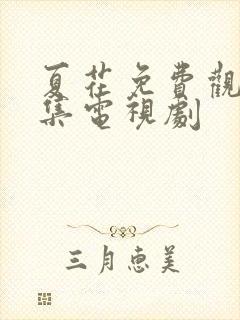 夏花免費觀
集電視劇
三月惠美